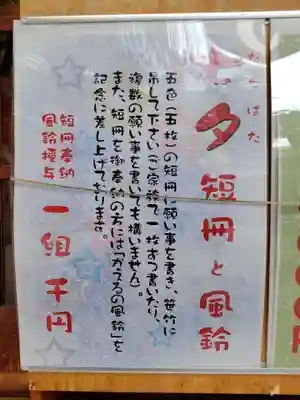 たなばた
七夕短冊と風鈴
五色(五枚)の短冊に願い事を書き、笹竹に
吊して下さい(ご家族で一枚ずつ書いたり、
複数の願い事を書いても構いません)。
また、短冊を御奉納の方には「かえるの風鈴」を
記念に差し上げております。
短冊奉納
風鈴授与
一組千円